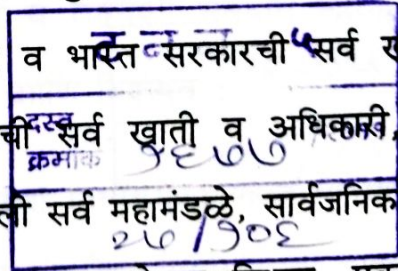 व भारत सरकारची सर्व
ची सर्व खाती व अधिकारी,
दस्त
क्रमांक १६७७
ली सर्व महामंडळे, सार्वजनिक
२७/१०६